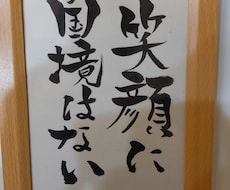 笑顔に
国境はない